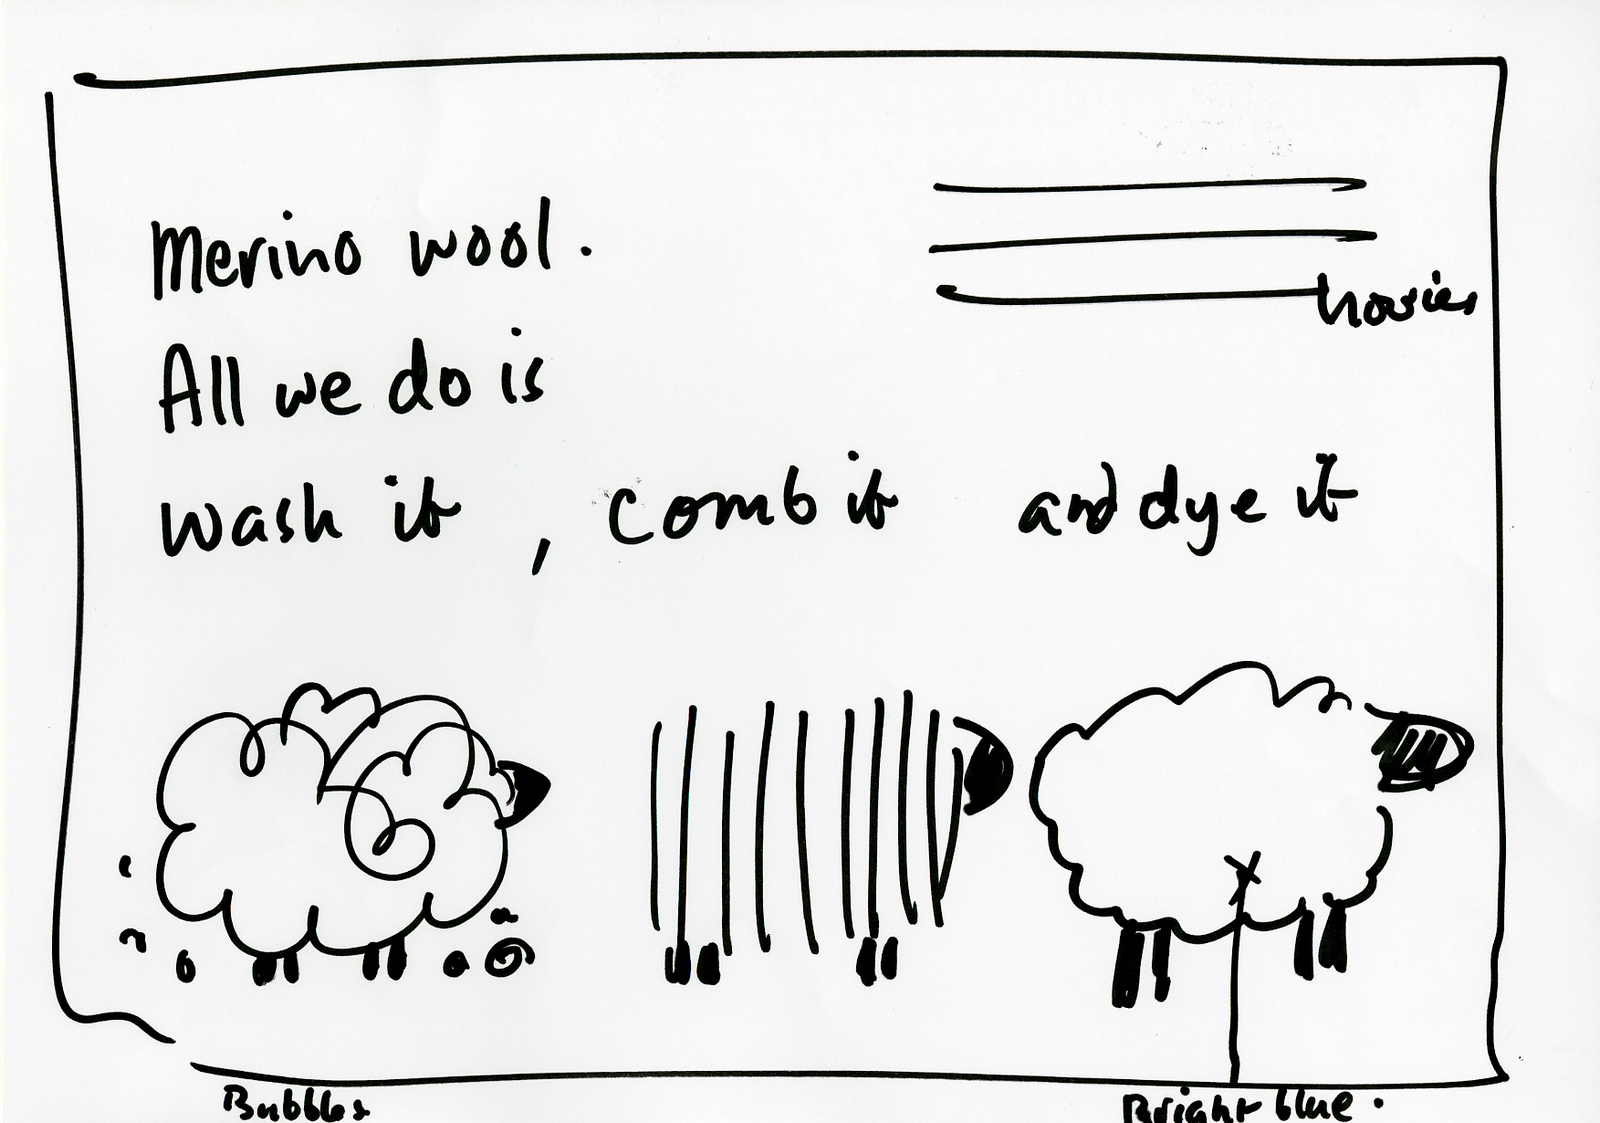 Merino wool.
hosies
All we do is
Wash it, comb it and dye it
Bubbles
Bright blue.